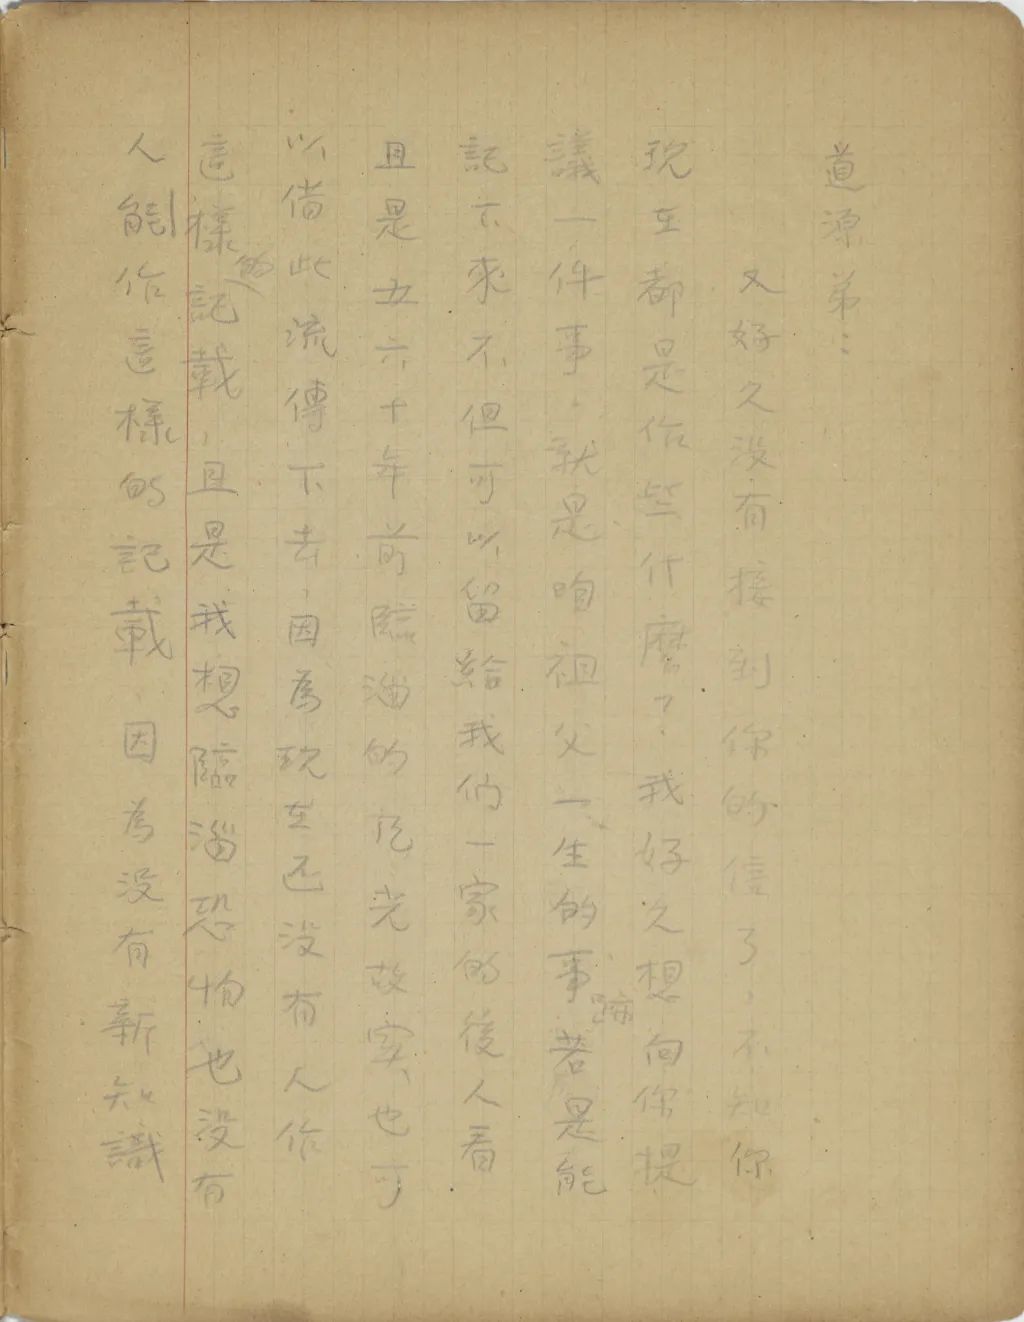 道源弟：
又好久没有接到你的信了，不知你
现在都是作些什麽？我好久想向你提
議一件事，就是咱祖父一生的事蹟若是能
記下來不但可以留給我們一家的後人看
且是五六十年前臨淄的风光故实也可
以借此流傳下去，因為现在还没有人作
這樣的記載，且是我想臨淄恐怕也没有
人能作這樣的記載，因為没有新知識